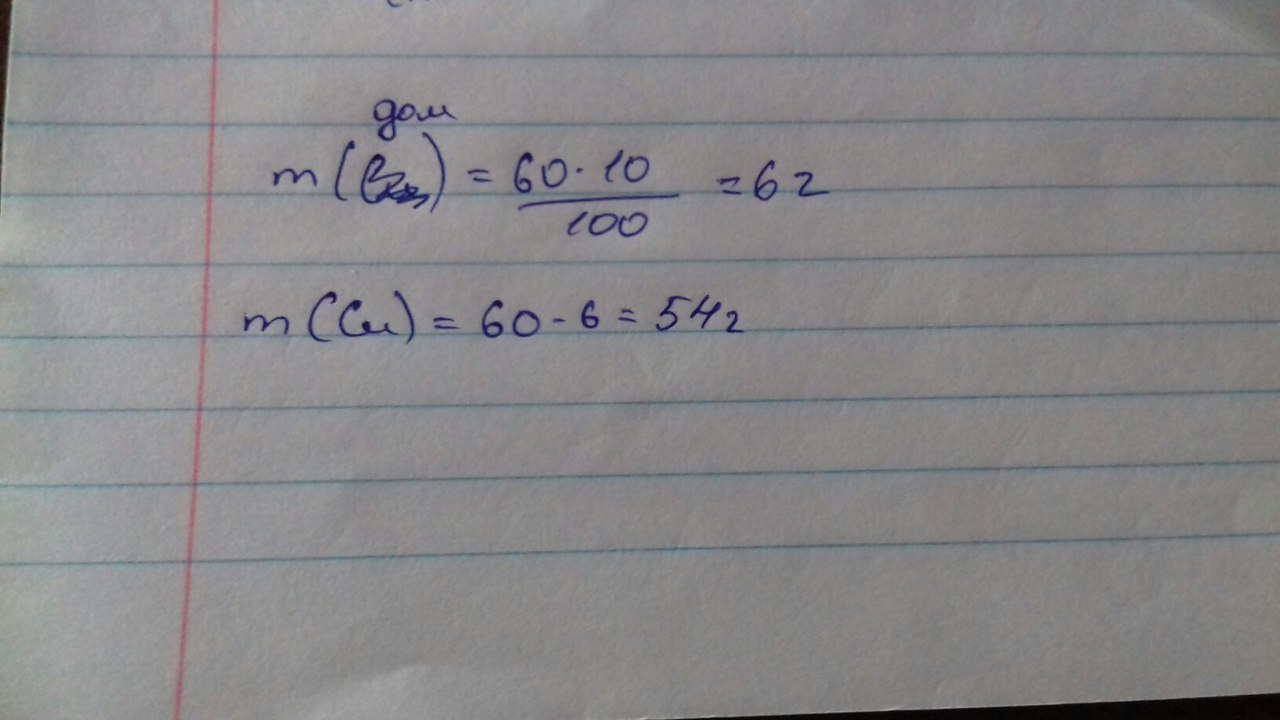 дом
m ( ) = 60 · 10 / 100 = 6 г
m (Cu) = 60 - 6 = 54 г